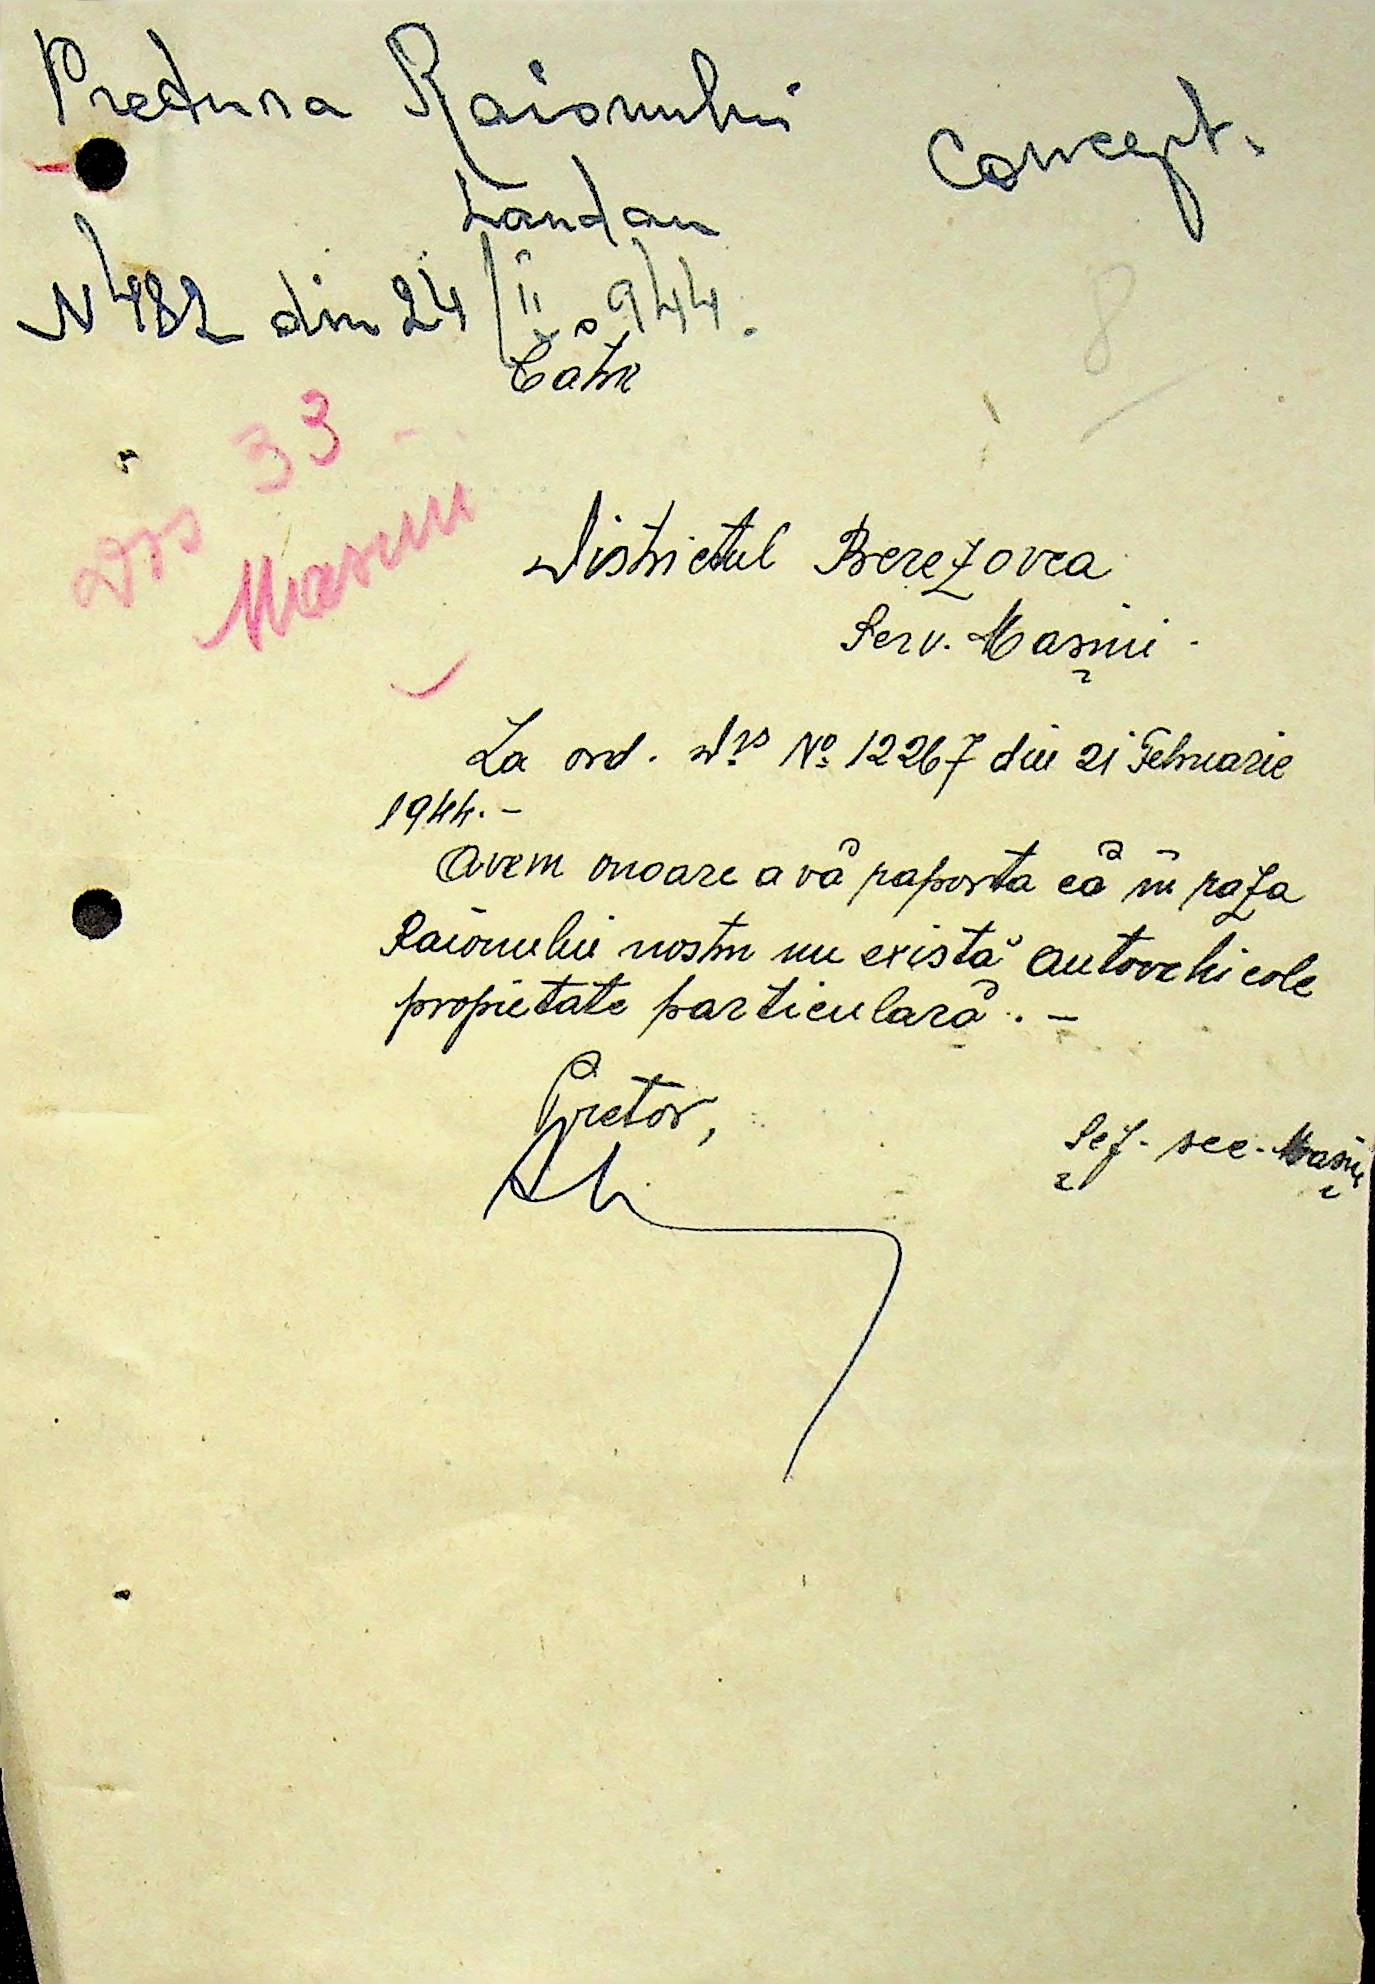 Pretura Raionului
Landau
Concept.
N 482 din 24/II 944.
8
Către
Dos 33
Mașini
Districtul Berezovca
Serv. Mașini.
La ord. Dvs No. 12267 din 21 Februarie
1944.-
Avem onoare a vă raporta că în raza
Raionului nostru nu există autovehicole
propietate particulară. -
Pretor,
Șef. sec. Mașini